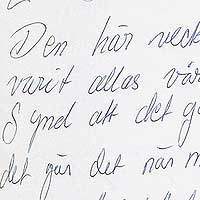 Den här veck
varit allas vår
Synd att det gå
det går det när m